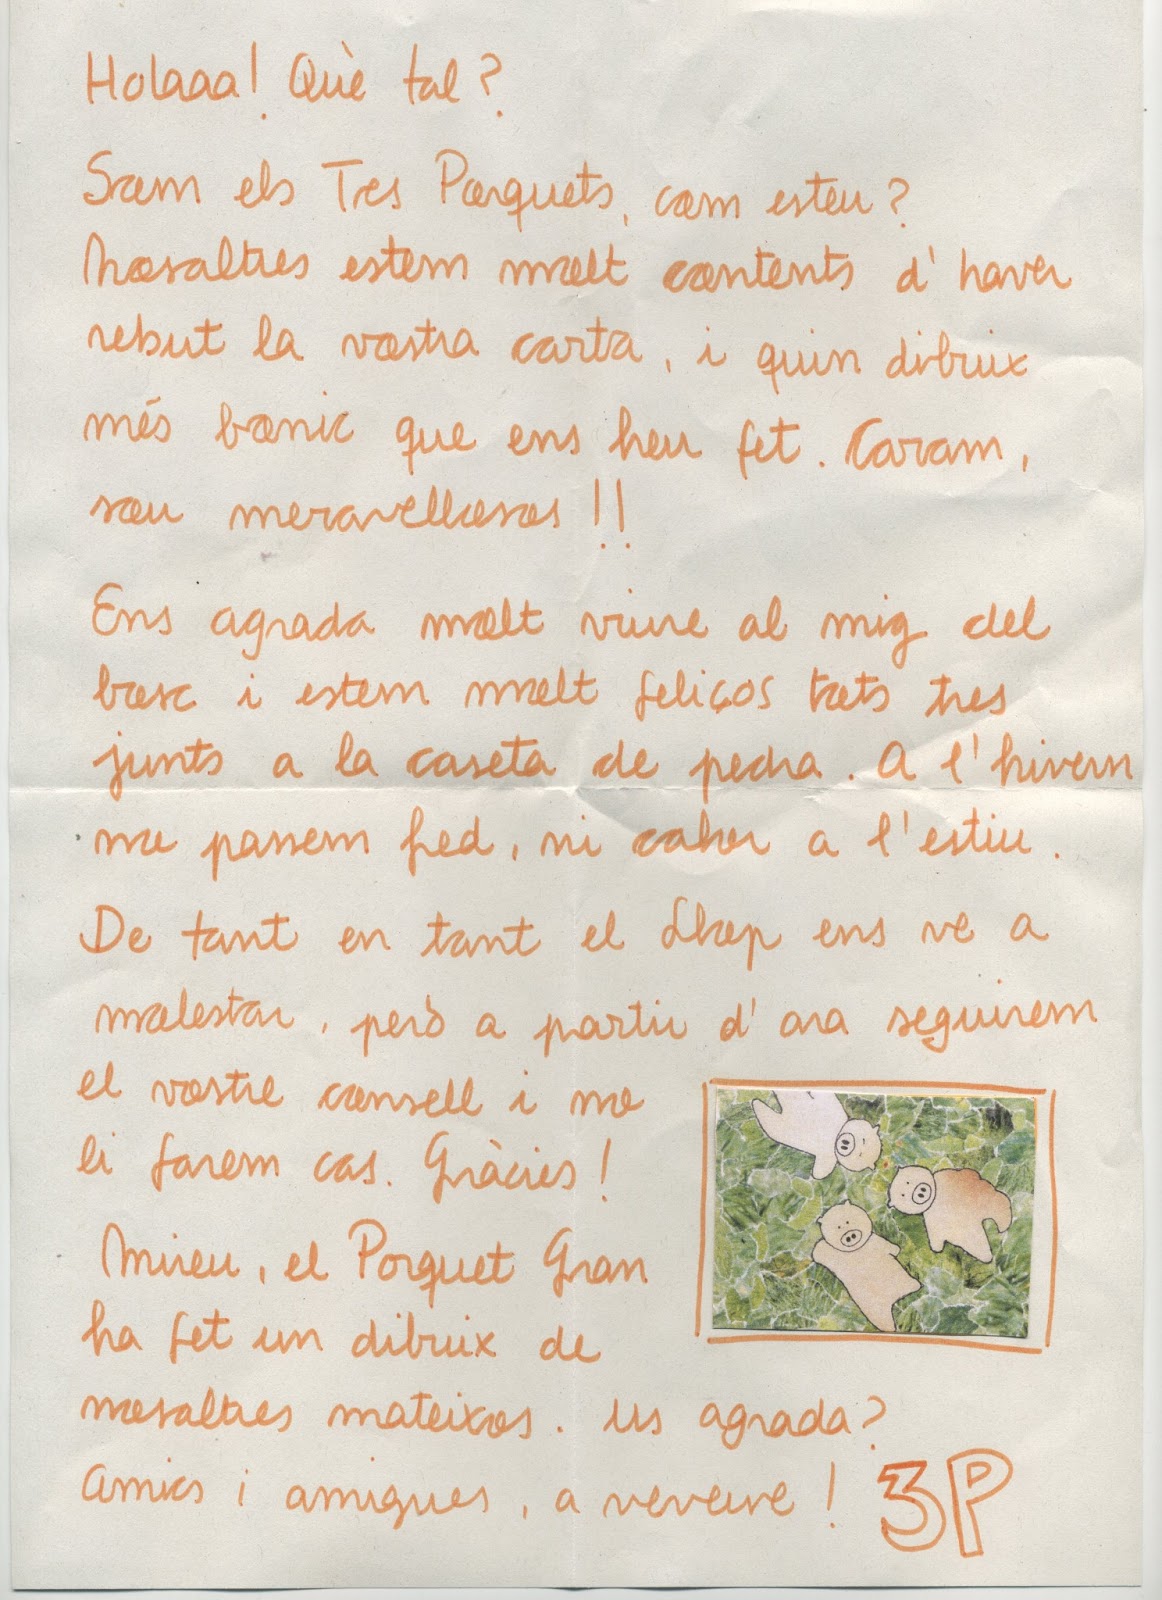 Holaaa! Què tal?
Som els Tres Porquets, com esteu?
Nosaltres estem molt contents d'haver
rebut la vostra carta, i quin dibuix
més bonic que ens heu fet. Caram,
sou meravellosos!!
Ens agrada molt viure al mig del
bosc i estem molt feliços tots tres
junts a la caseta de pedra. A l'hivern
no passem fred, ni calor a l'estiu.
De tant en tant el Llop ens ve a
molestar, però a partir d'ara seguirem
el vostre consell i no
li farem cas. Gràcies!
Mireu, el Porquet Gran
ha fet un dibuix de
nosaltres mateixos. Us agrada?
Amics i amigues, a reveure!
3P